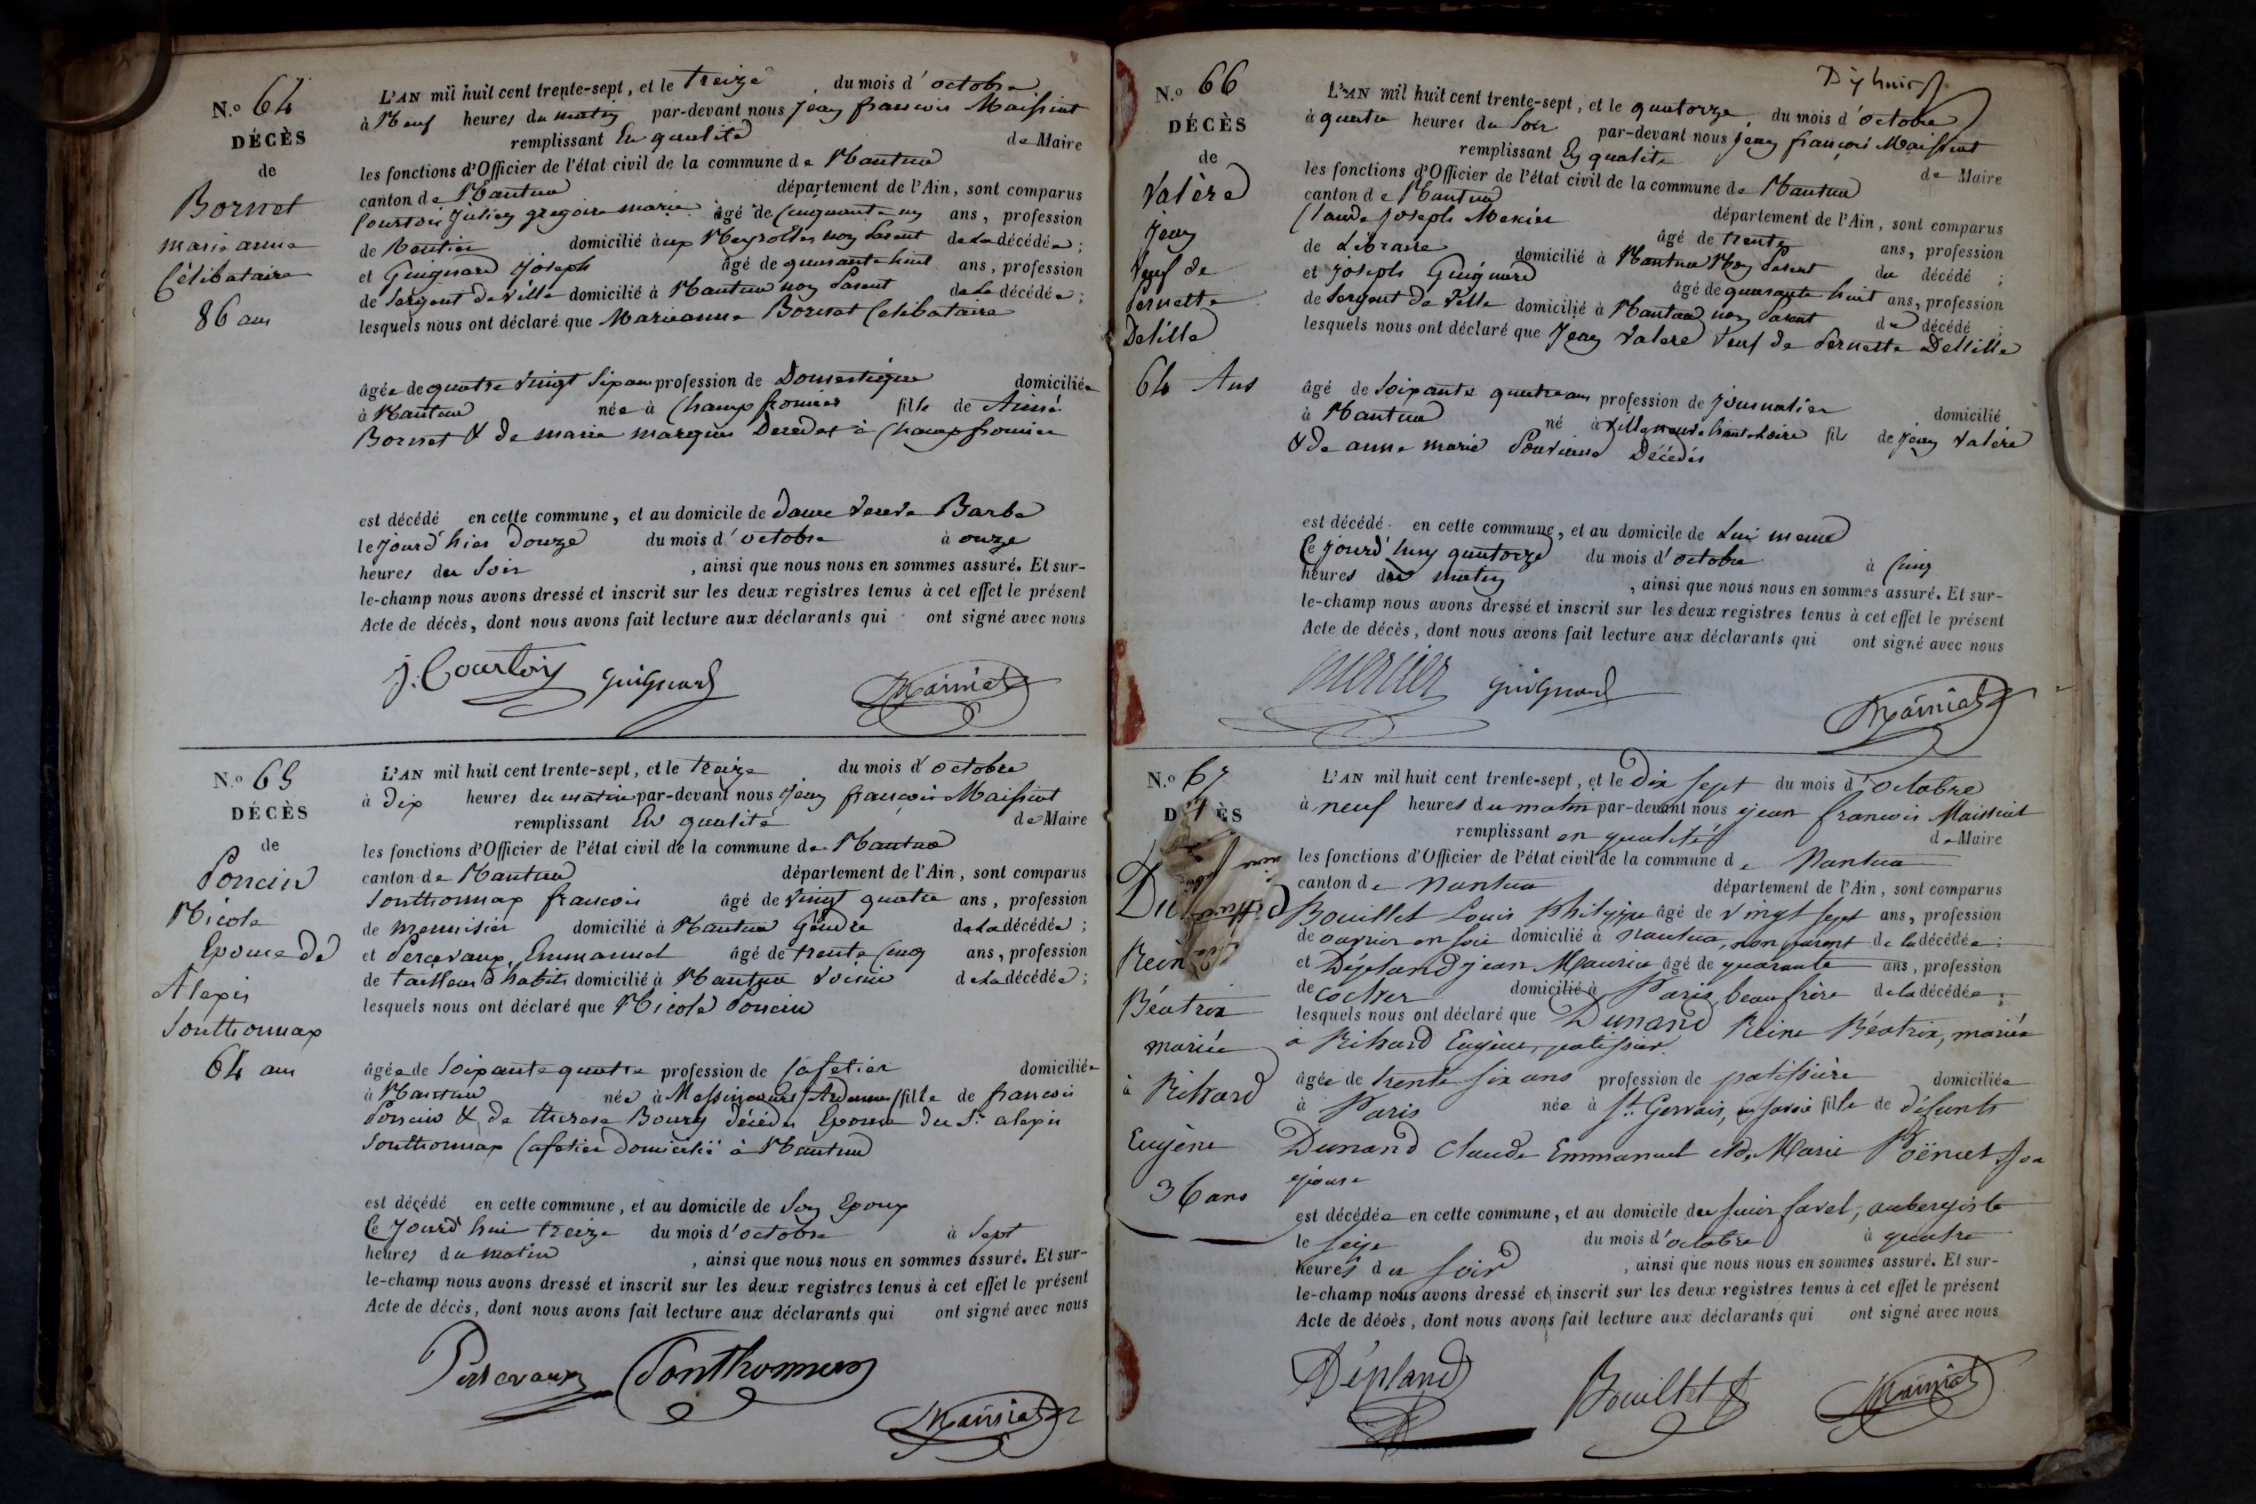 N.o 64
DÉCÈS
de
Bornet
marie anne
Célibataire
86 ans
L'AN mil huit cent trente-sept, et le treize du mois d'octobre
à Neuf heures du matin par-devant nous Jean françois Maissiat
remplissant En qualité de Maire
les fonctions d'Officier de l'état civil de la commune de Nantua
canton de Nantua département de l'Ain, sont comparus
Courtois Julien gregoire marie âgé de Cinquante un ans, profession
de Rentier domicilié aux Neyrolles non parent de la décédée;
et Guignard Joseph âgé de quarante huit ans, profession
de Sergent de ville domicilié à Nantua non parent de la décédée;
lesquels nous ont déclaré que Marieanne Bornet Célibataire
âgée de quatre vingt six ans profession de Domestique domiciliée
à Nantua née à Champfromier fille de Aimé
Bornet & de marie marquis Décédés à Champfromier
est décédé en cette commune, et au domicile de dame veuve Barbe
le jourd'hier douze du mois d'octobre à onze
heures du Soir, ainsi que nous nous en sommes assuré. Et sur-
le-champ nous avons dressé et inscrit sur les deux registres tenus à cet effet le présent
Acte de décès, dont nous avons fait lecture aux déclarants qui ont signé avec nous
J. Courtois guignard Maissiat
N.o 65
DÉCÈS
de
Poncin
Nicole
Epouse de
Alexis
Sonthonnax
64 ans
L'AN mil huit cent trente-sept, et le treize du mois d'octobre
à dix heures du matin par-devant nous Jean françois Maissiat
remplissant En qualité de Maire
les fonctions d'Officier de l'état civil de la commune de Nantua
canton de Nantua département de l'Ain, sont comparus
Sonthonnax françois âgé de vingt quatre ans, profession
de menuisier domicilié à Nantua Gendre de la décédée;
et Percevaux Emmanuel âgé de trente Cinq ans, profession
de tailleur d'habits domicilié à Nantua voisin de la décédée;
lesquels nous ont déclaré que Nicole Poncin
âgée de Soixante quatre profession de Cafetier domiciliée
à Nantua née à (Ardennes) fille de françois
Poncin & de therese Bourg décédés Epouse du Sr alexis
Sonthonnax Cafetier domicilié à Nantua
est décédé en cette commune, et au domicile de Son Epoux
Ce Jourd'hui treize du mois d'octobre à Sept
heures du matin, ainsi que nous nous en sommes assuré. Et sur-
le-champ nous avons dressé et inscrit sur les deux registres tenus à cet effet le présent
Acte de décès, dont nous avons fait lecture aux déclarants qui ont signé avec nous
Percevaux Sonthonnax
Maissiat
N.o 66
DÉCÈS
de
Valère
Jean
Veuf de
Pernette
Delille
64 Ans
L'AN mil huit cent trente-sept, et le quatorze du mois d'octobre
à quatre heures du Soir par-devant nous Jean françois Maissiat
remplissant En qualité de Maire
les fonctions d'Officier de l'état civil de la commune de Nantua
canton de Nantua département de l'Ain, sont comparus
Claude Joseph Mercier âgé de trente ans, profession
de Libraire domicilié à Nantua Non Parent du décédé;
et joseph Guignard âgé de quarante huit ans, profession
de Sergent de Ville domicilié à Nantua non Parent du décédé;
lesquels nous ont déclaré que Jean Valere Veuf de Pernette Dellille
âgé de Soixante quatre ans profession de Journalier domicilié
à Nantua né à Villeneuve haute Loire fils de Jean Valère
& de anne marie Décédés
est décédé en cette commune, et au domicile de Lui meme
Ce jourd'huy quatorze du mois d'octobre à Cinq
heures du matin, ainsi que nous nous en sommes assuré. Et sur-
le-champ nous avons dressé et inscrit sur les deux registres tenus à cet effet le présent
Acte de décès, dont nous avons fait lecture aux déclarants qui ont signé avec nous
mercier guignard
Maissiat
N.o 67
DÉCÈS
Reine
Béatrix
mariée
à Richard
Eugène
36 ans
L'AN mil huit cent trente-sept, et le Dix sept du mois d'octobre
à neuf heures du matin par-devant nous jean françois Maissiat
remplissant en qualité de Maire
les fonctions d'Officier de l'état civil de la commune de Nantua
canton de Nantua département de l'Ain, sont comparus
Bouillet Louis Philippe âgé de vingt sept ans, profession
de ouvrier en soie domicilié à nantua, non parent de la décédée;
et Dépland jean Maurice âgé de quarante ans, profession
de cocher domicilié à Paris, beau frère de la décédée;
lesquels nous ont déclaré que Dunand Reine Béatrix, mariée
à Richard Eugène, patissier
âgée de trente six ans profession de patissière domiciliée
à Paris née à St. Gervais, en savoie fille de défunts
Dunand Claude Emmanuel et de Marie son
épouse
est décédée en cette commune, et au domicile du sieur favel, aubergiste
le seize du mois d'octobre à quatre
heures du soir, ainsi que nous nous en sommes assuré. Et sur-
le-champ nous avons dressé et inscrit sur les deux registres tenus à cet effet le présent
Acte de décès, dont nous avons fait lecture aux déclarants qui ont signé avec nous
Dépland Bouillet Maissiat